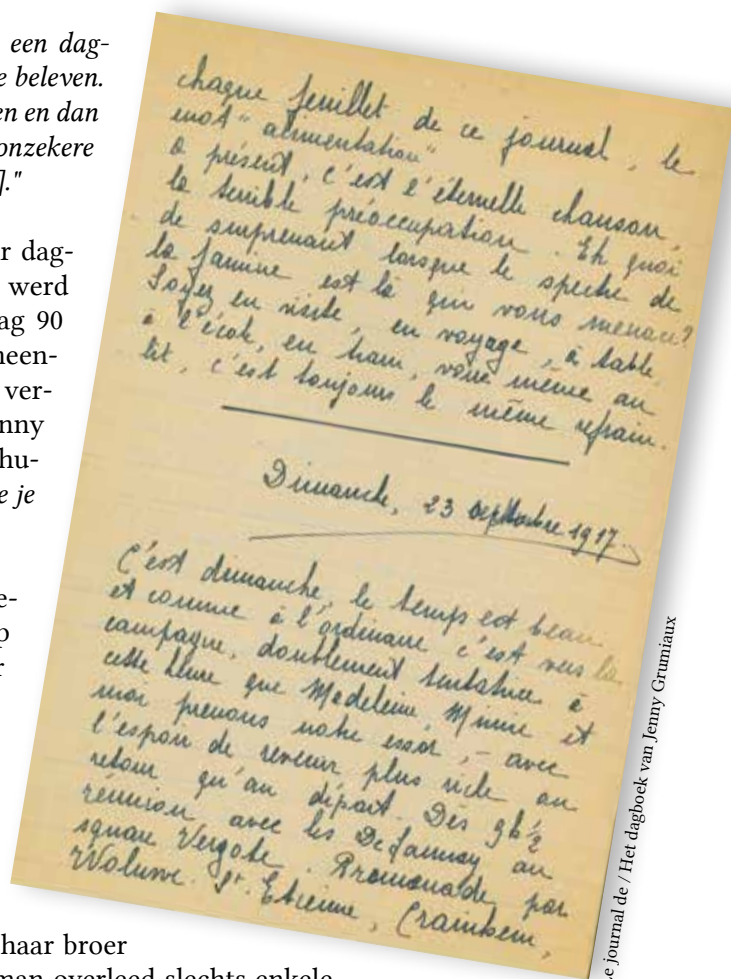 een dag-
e beleven.
en en dan
onzekere
]."
r dag-
werd
ag 90
neen-
ver-
nny
hu-
e je
e-
p
r
haar broer
man overleed slechts enkele
chaque feuillet de ce journal, le
mot "alimentation"
à présent, c'est l'éternelle chanson,
la terrible préoccupation. Eh quoi
de surprenant lorsque le spectre de
la famine est là qui vous menace?
Soyez en visite, en voyage, à table,
à l'école, en tram, voire même au
lit, c'est toujours le même refrain.
Dimanche, 23 septembre 1917.
C'est dimanche, le temps est beau
et comme à l'ordinaire c'est vers la
campagne, doublement tentatrice à
cette heure que Madeleine, et
moi prenons notre essor, – avec
l'espoir de revenir plus riche au
retour qu'au départ. Dès 9h ½
réunion avec les au
square Vergote. Promenade par
Woluwe. St. Etienne, Crainhem,
e journal de / Het dagboek van Jenny Grumiaux